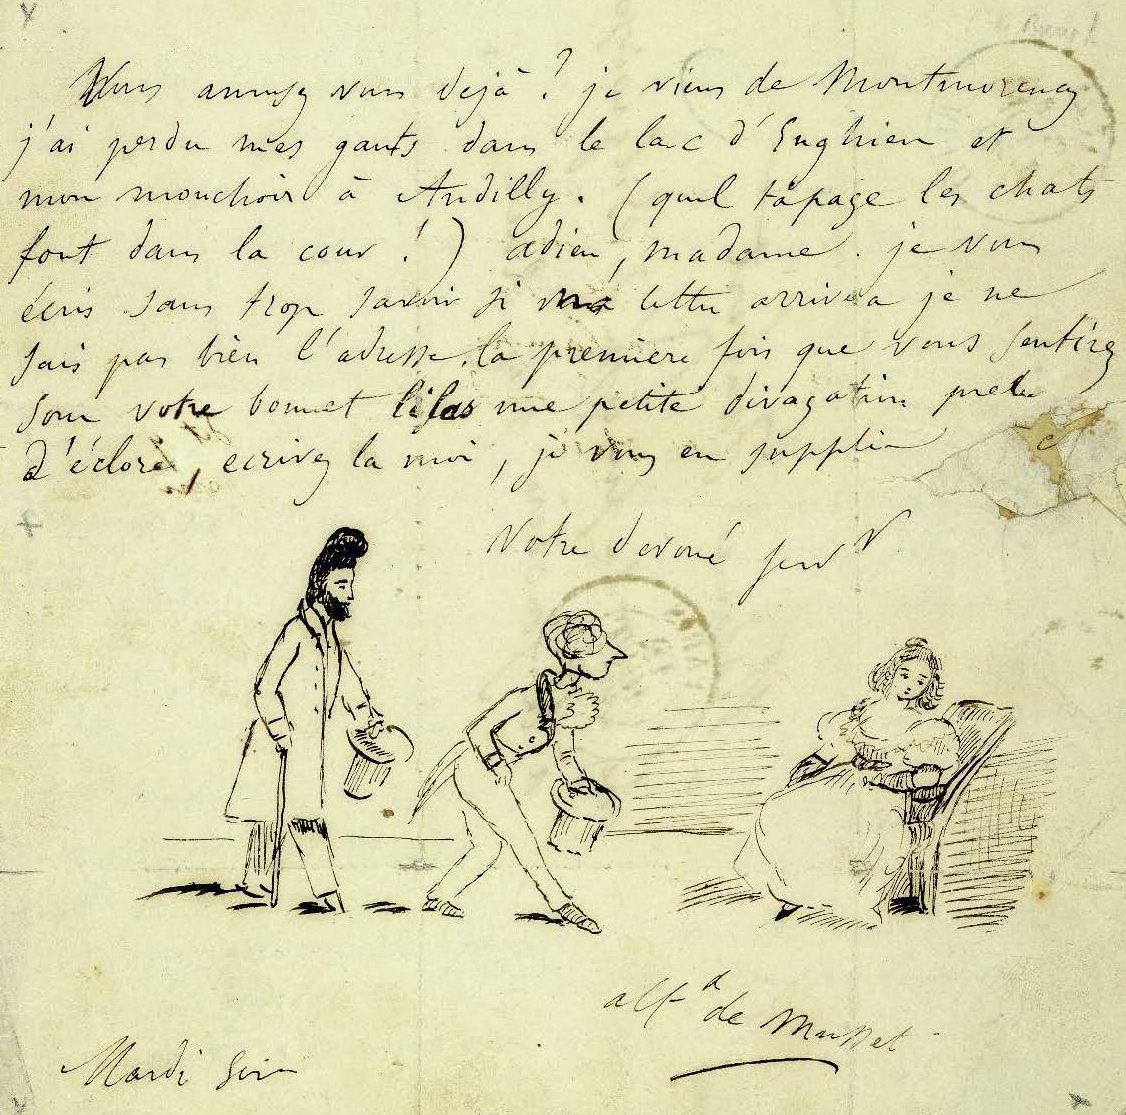 Vous amusez vous déjà ? je viens de Montmorency
j'ai perdu mes gants dans le lac d'Enghien et
mon mouchoir à Andilly. (quel tapage les chats
font dans la cour !) adieu, madame. je vous
écris sans trop savoir si ma lettre arrivera je ne
sais pas bien l'adresse. la première fois que vous sentirez
sous votre bonnet lilas une petite divagation prete
d'éclore, ecrivez la moi, je vous en supplie
Votre devoué serv r
alf d de Musset
Mardi soir